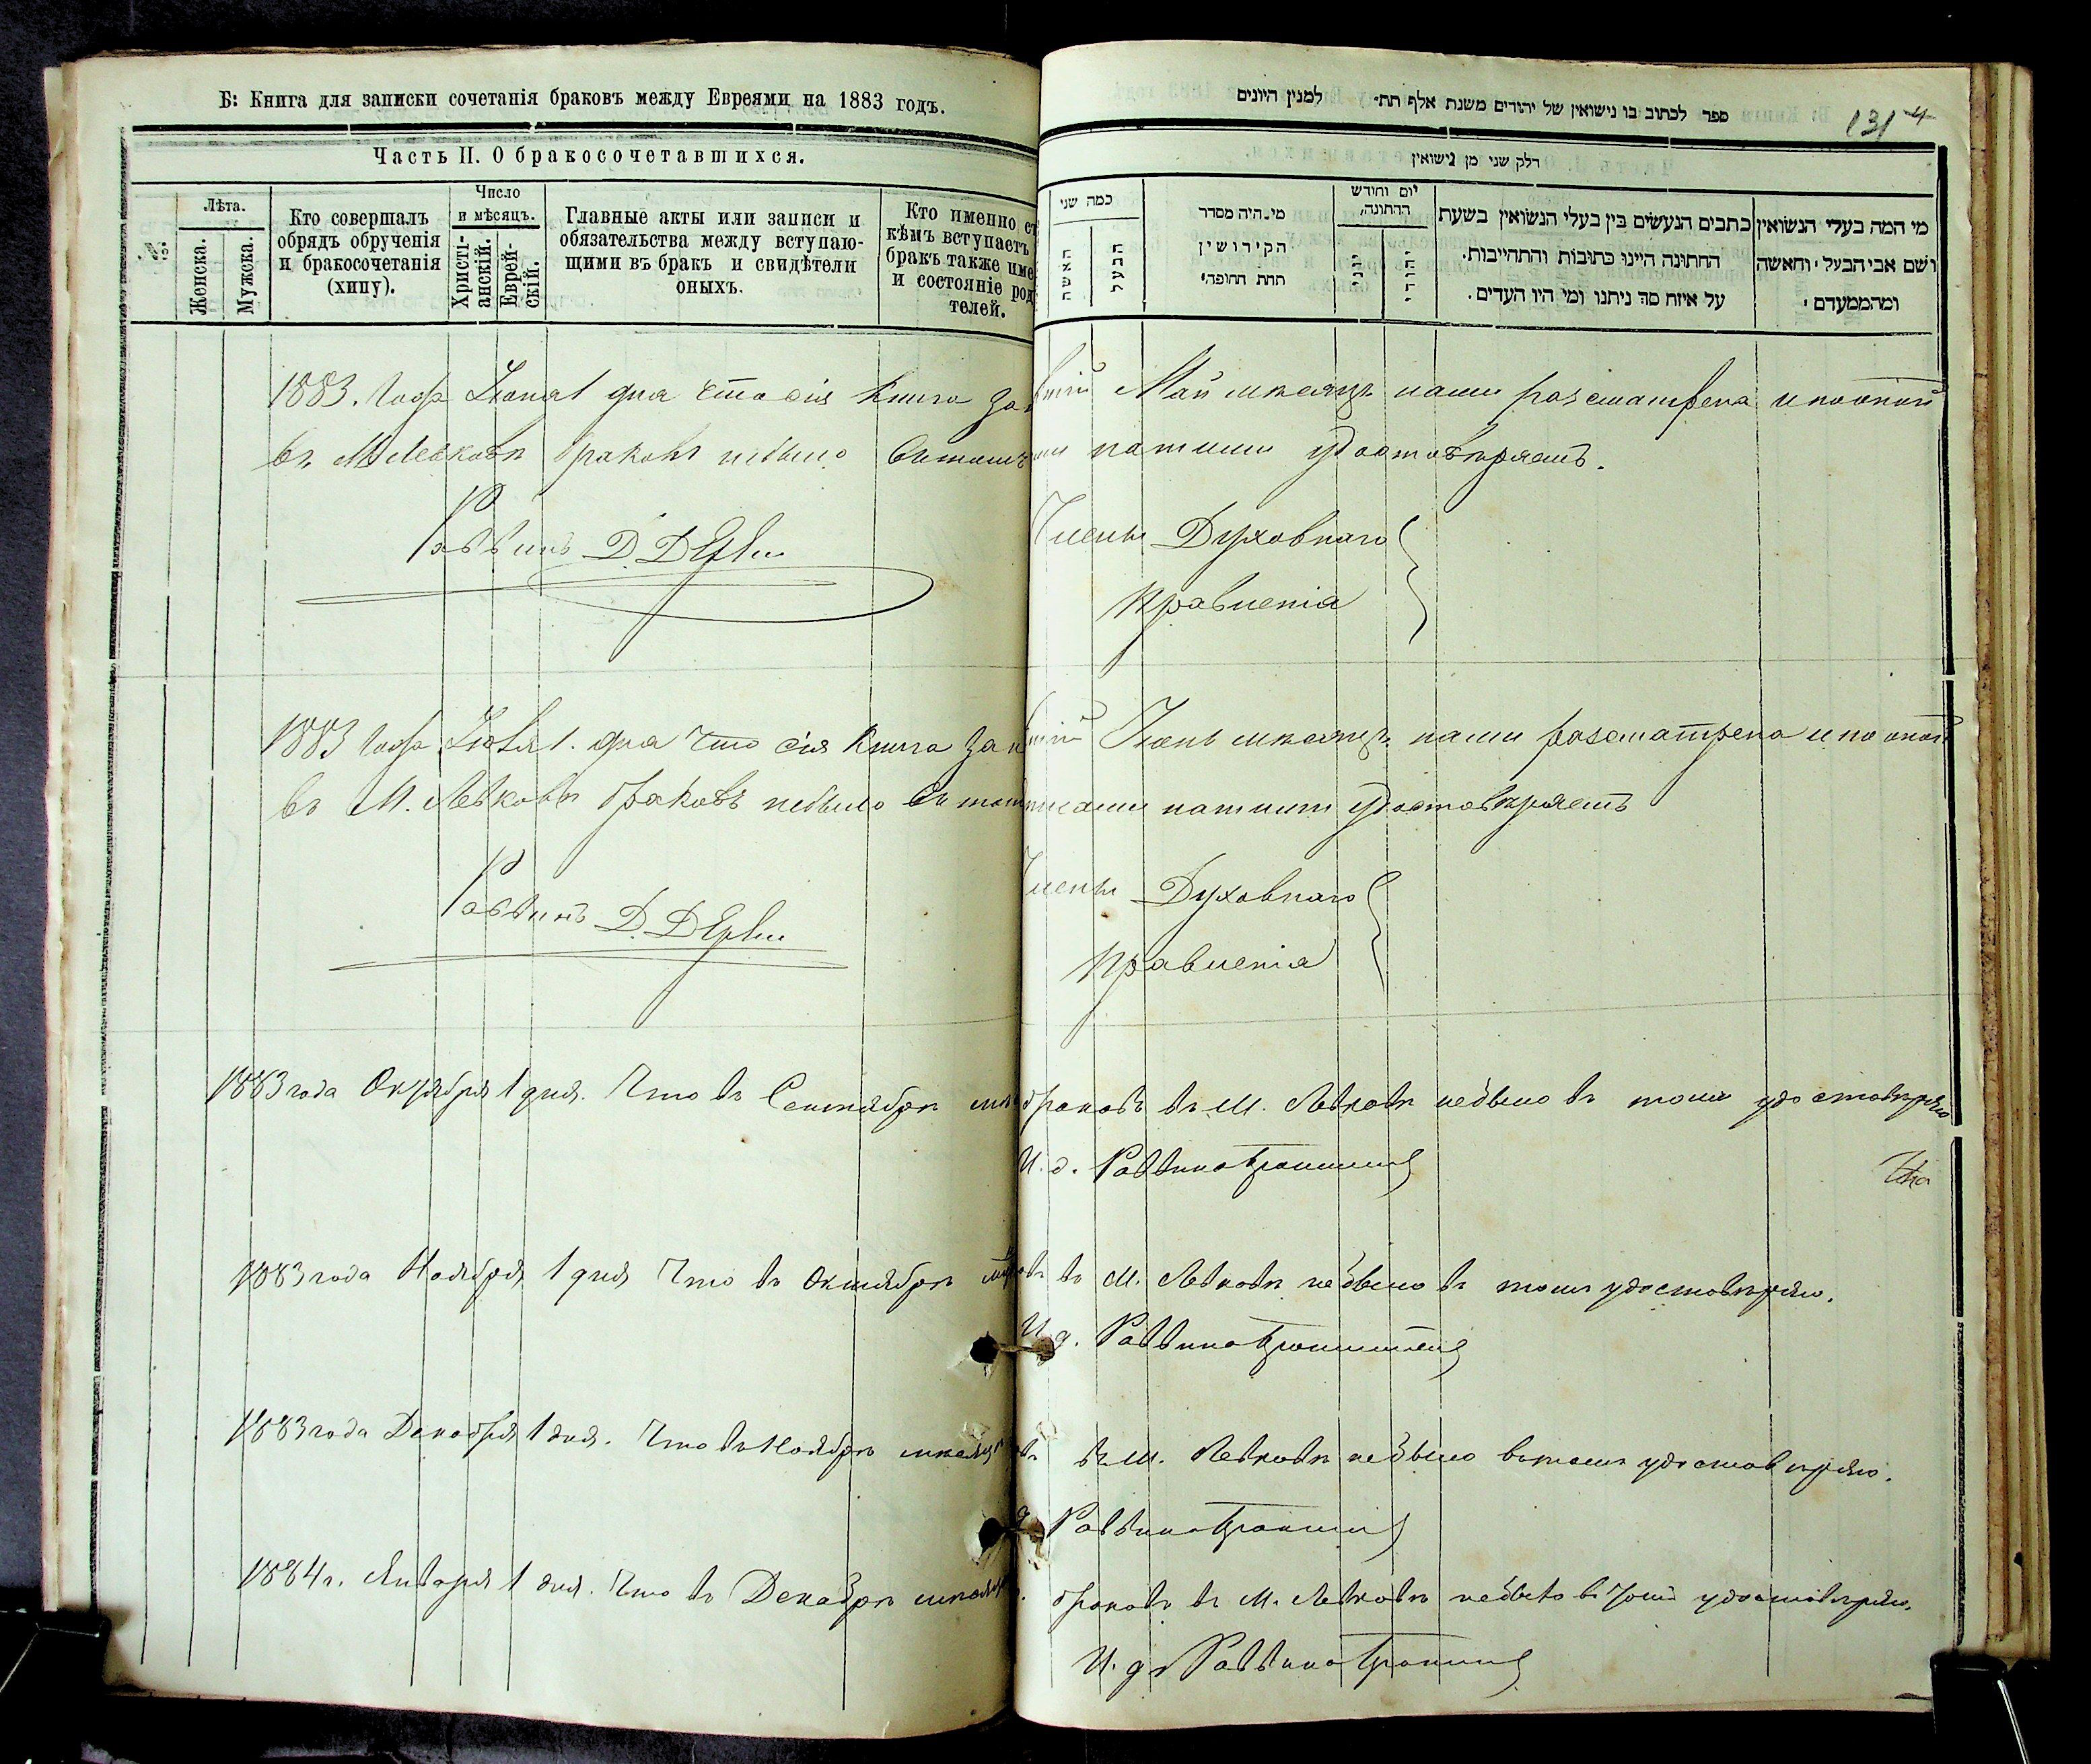 Б: Книга для записки сочетанія браковъ между Евреями на 1883 годъ.
Часть II. О бракосочетавшихся.
№
Лѣта.
Женска.
Мужска.
Кто совершалъ
обрядъ обрученія
и бракосочетанія
(хипу).
Число
и мѣсяцъ.
Христі-
анскій.
Еврей-
скій.
Главные акты или записи и
обязательства между вступаю-
щими въ бракъ и свидѣтели
оныхъ.
Кто именно
кѣмъ вступаетъ
бракъ также име
и состояніе род
телей.
ספר לכתוב בו נישואין של יהודים משנת אלף תת״ למנין היונים
131
4
חלק שני מן נישואין
כמה שני
האשה
הבעל
מי היה מסדר
הקידושין
תחת החופה
יום וחודש
החתונה
יוני
יהודי
כתבים הנעשים בין בעלי הנשואין בשעת
החתונה היינו כתובות והתחייבות
על איזה סך ניתנו ומי היו העדים.
מי המה בעלי הנשואין
ושם אבי הבעל וחאשה
ומהממעדם
1883. года Іюня 1 дня что сія книга за Май мѣсяцъ нами разсматрена и по оной
въ М Левковѣ браковъ небыло въ томъ подписами нашими удостовѣряемъ.
Раввинъ Д.
Члены Духовнаго
Правленія
1883 года Іюля 1. дня что сія книга за Іюнь мѣсяцъ нами разсматрена и по оной
въ М. Левковѣ браковъ небыло въ томъ подписами нашими удостовѣряемъ
Раввинъ Д.
Члены Духовнаго
Правленія
1883 года Октября 1 дня. Что въ Сентябрѣ браковъ въ М. Левковѣ небыло въ томъ удостовѣряю
И. д. Раввина
1883 года Ноября 1 дня Что въ Октябрѣ въ М. Левковѣ небыло въ томъ удостовѣряю.
И. д. Раввина
1883 года Декабря 1 дня. Что въ Ноябрѣ мѣсяцѣ въ М. Левковѣ небыло въ томъ удостовѣряю.
Раввина
1884 г. Января 1 дня. Что въ Декабрѣ мѣсяцѣ браковъ въ М. Левковѣ небыло въ томъ удостовѣряю.
И. д. Раввина